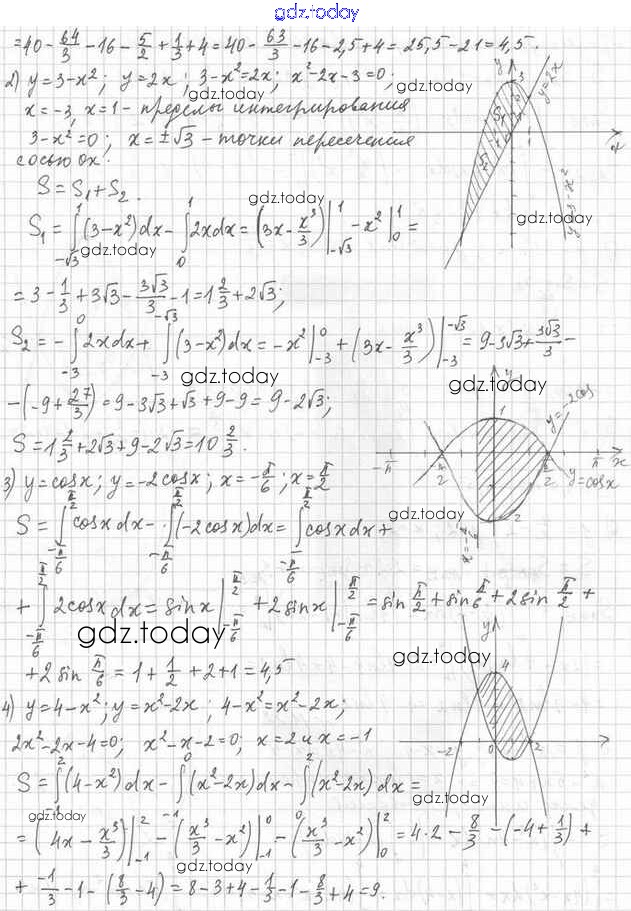 gdz.today
=40-64/3-16-5/2+1/3+4=40-63/3-16-2,5+4=25,5-21=4,5.
2) y=3-x²; y=2x; 3-x²=2x; x²-2x-3=0;
x=-3, x=1-пределы интегрирования
3-x²=0; x=±√3-точки пересечения
с осью ox.
S=S₁+S₂.
S₁=∫_{-√3}^{1}(3-x²)dx-∫_{0}^{1}2xdx=(3x-x³/3)|_{-√3}^{1}-x²|_{0}^{1}=
=3-1/3+3√3-3√3/3-1=1 2/3+2√3;
S₂=-∫_{-3}^{0}2xdx+∫_{-3}^{-√3}(3-x²)dx=-x²|_{-3}^{0}+(3x-x³/3)|_{-3}^{-√3}=9-3√3+3√3/3-
-(-9+27/3)=9-3√3+√3+9-9=9-2√3;
S=1 2/3+2√3+9-2√3=10 2/3.
3) y=cosx; y=-2cosx; x=-π/6; x=π/2
S=∫_{-π/6}^{π/2}cosxdx-∫_{-π/6}^{π/2}(-2cosx)dx=∫_{-π/6}^{π/2}cosxdx+
+∫_{-π/6}^{π/2}2cosxdx=sinx|_{-π/6}^{π/2}+2sinx|_{-π/6}^{π/2}=sin π/2+sin π/6+2sin π/2+
+2sin π/6=1+1/2+2+1=4,5
4) y=4-x²; y=x²-2x; 4-x²=x²-2x;
2x²-2x-4=0; x²-x-2=0; x=2 и x=-1
S=∫_{-1}^{2}(4-x²)dx-∫_{-1}^{0}(x²-2x)dx-∫_{0}^{2}(x²-2x)dx=
=(4x-x³/3)|_{-1}^{2}-(x³/3-x²)|_{-1}^{0}-(x³/3-x²)|_{0}^{2}=4·2-8/3-(-4+1/3)+
+-1/3-1-(8/3-4)=8-3+4-1/3-1-8/3+4=9.
y
3
y=2x
1
x
y=3-x²
S₁
S₂
y
1
y=-2cos
-π
π
x
y=cosx
-2
y
4
-2
0
2
gdz.today
gdz.today
gdz.today
gdz.today
gdz.today
gdz.today
gdz.today
gdz.today
gdz.today
gdz.today
gdz.today
gdz.today
gdz.today
gdz.today